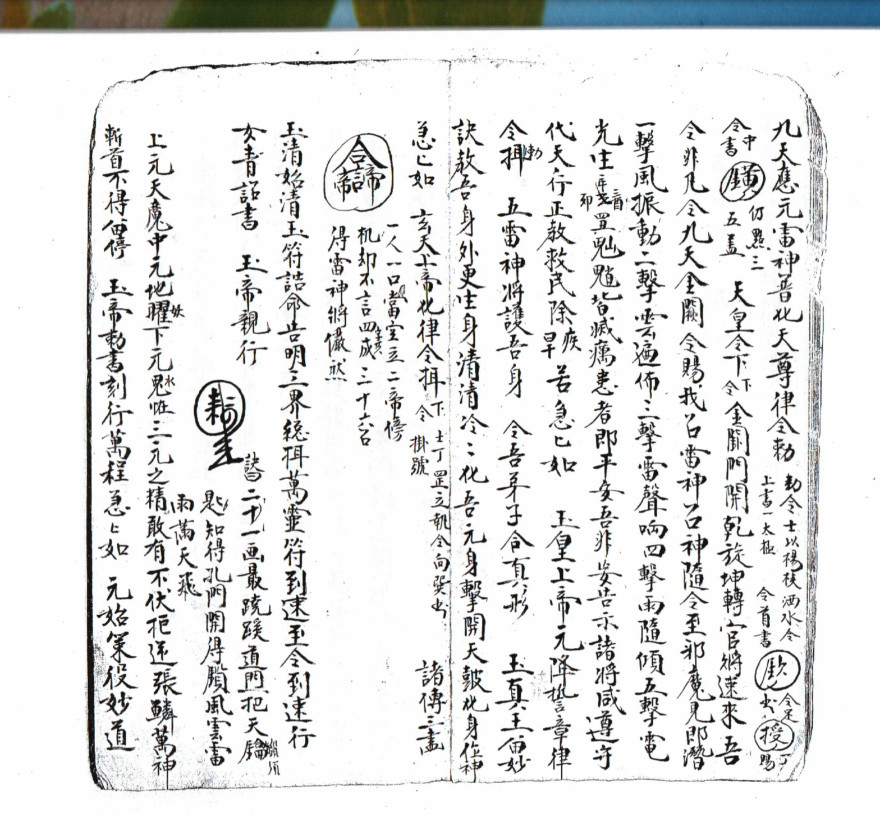 九天應元雷神普化天尊律令勅
勅令士以楊枝洒水令
上書一太極 令首書
令中書 仍點三
五盖 天皇令下 金闕門開乾旋坤轉官將速來吾
令非凡令九天金闕令賜我召雷神召神隨令至邪魔見即潛
一擊風振動二擊雲遍佈三擊雷聲响四擊雨隨傾五擊電
光生 罡魁魓皆滅癘患者即平安吾非妄告示諸將咸遵守
代天行正教救民除疾苦急匕如 玉皇上帝元降誓章律
令 五雷神將護吾身 令吾弟子合真形 玉真王留妙
訣教吾身外更生身清清冷冷化吾元身擊開天皷化身位神
急匕如 玄天上帝化律令 令掛號 罡立執令向巽出 諸傳三画
一人一口當室立二帝傍
机却不言四成三十六召
得雷神將儼然
玉清始清玉符誥命告明三界總 萬靈符到速至令到速行
女青詔書 玉帝親行
二十一画最蹺蹊道門把天
匙知得孔門開得 風雲雷
雨萬天飛
上元天魔中元地曜下元鬼 三元之精敢有不伏拒逆張鱗萬神
斬首不得留停 玉帝勅書刻行萬程急匕如 元始策役妙道